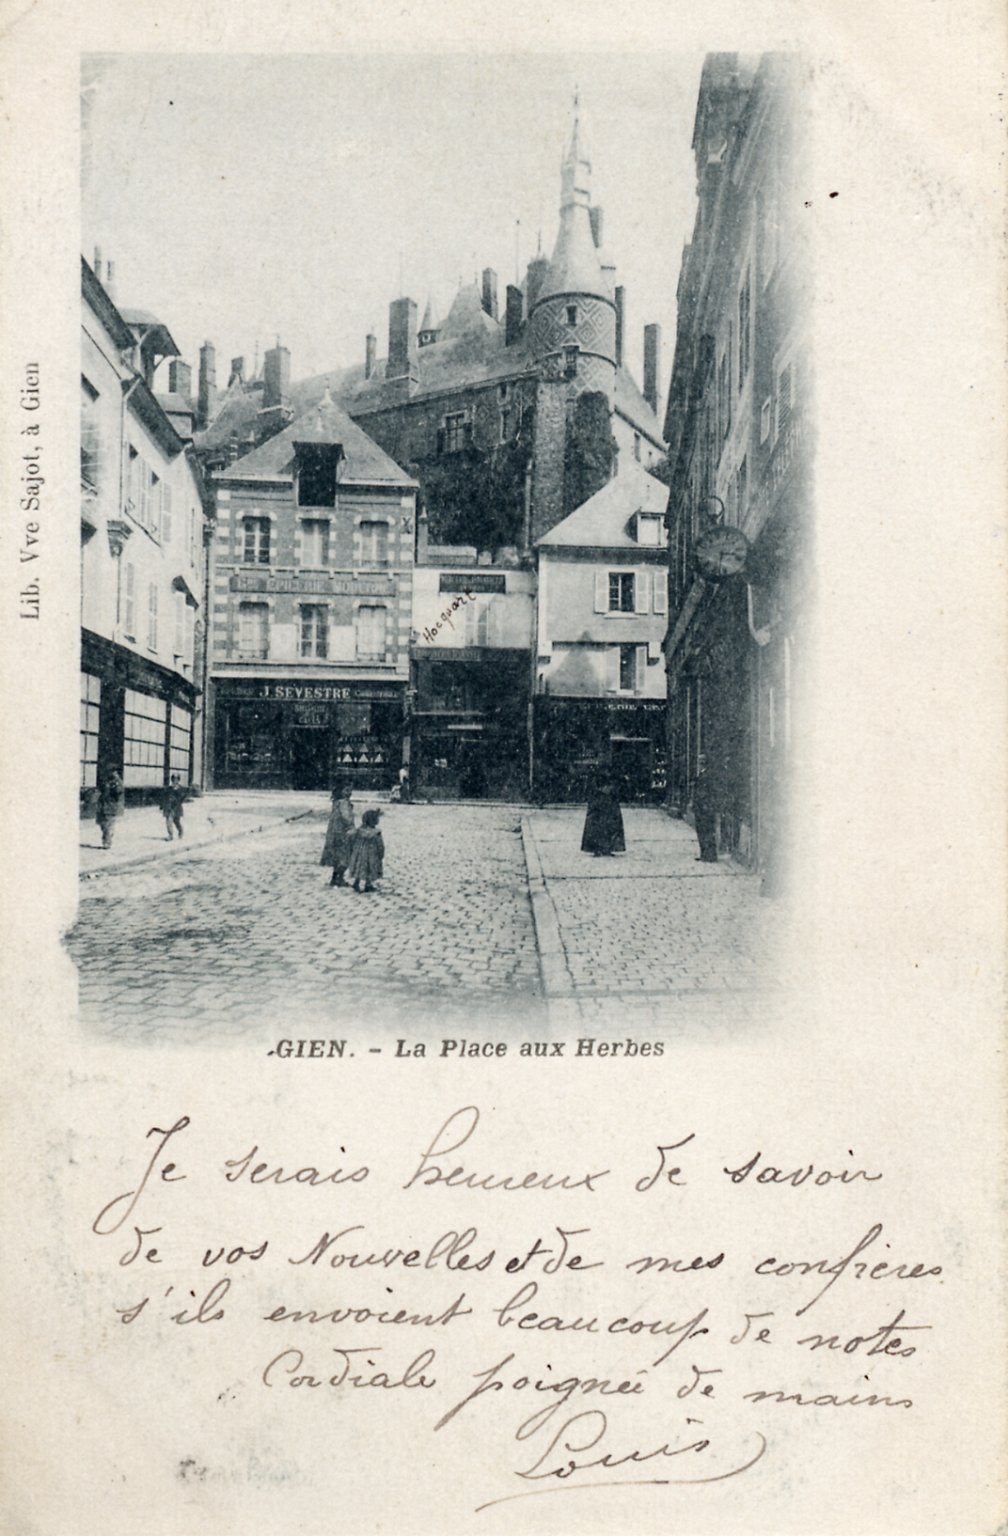 Lib. Vve Sajot, à Gien
Hocquart
J. SEVESTRE
GIEN. - La Place aux Herbes
Je serais heureux de savoir
de vos Nouvelles et de mes confrères
s'ils envoient beaucoup de notes
Cordiale poignée de mains
Louis